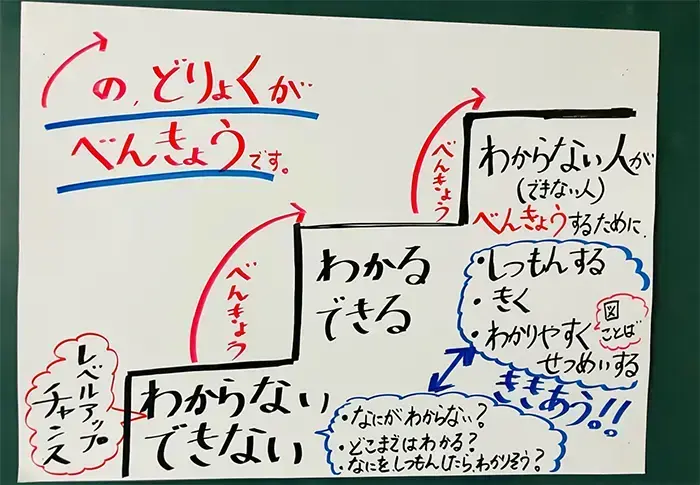 の、どりょくが
べんきょうです。
べんきょう
わからない人が
(できない人)
べんきょうするために、
・しつもんする
・きく
・わかりやすく
せつめいする
図
ことば
ききあう!!
べんきょう
わかる
できる
レベルアップ
チャンス
わからない
できない
・なにがわからない?
・どこまではわかる?
・なにを、しつもんしたら、わかりそう?